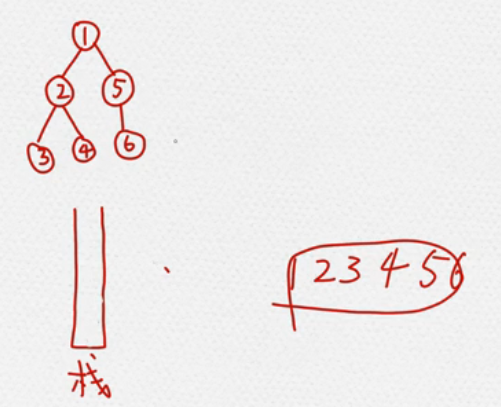 1
2 5
3 4 6
1 2 3 4 5 6
栈